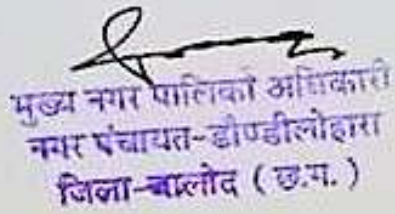 मुख्य नगर पालिका अधिकारी
नगर पंचायत-डौण्डीलोहारा
जिला-बालोद (छ.ग.)